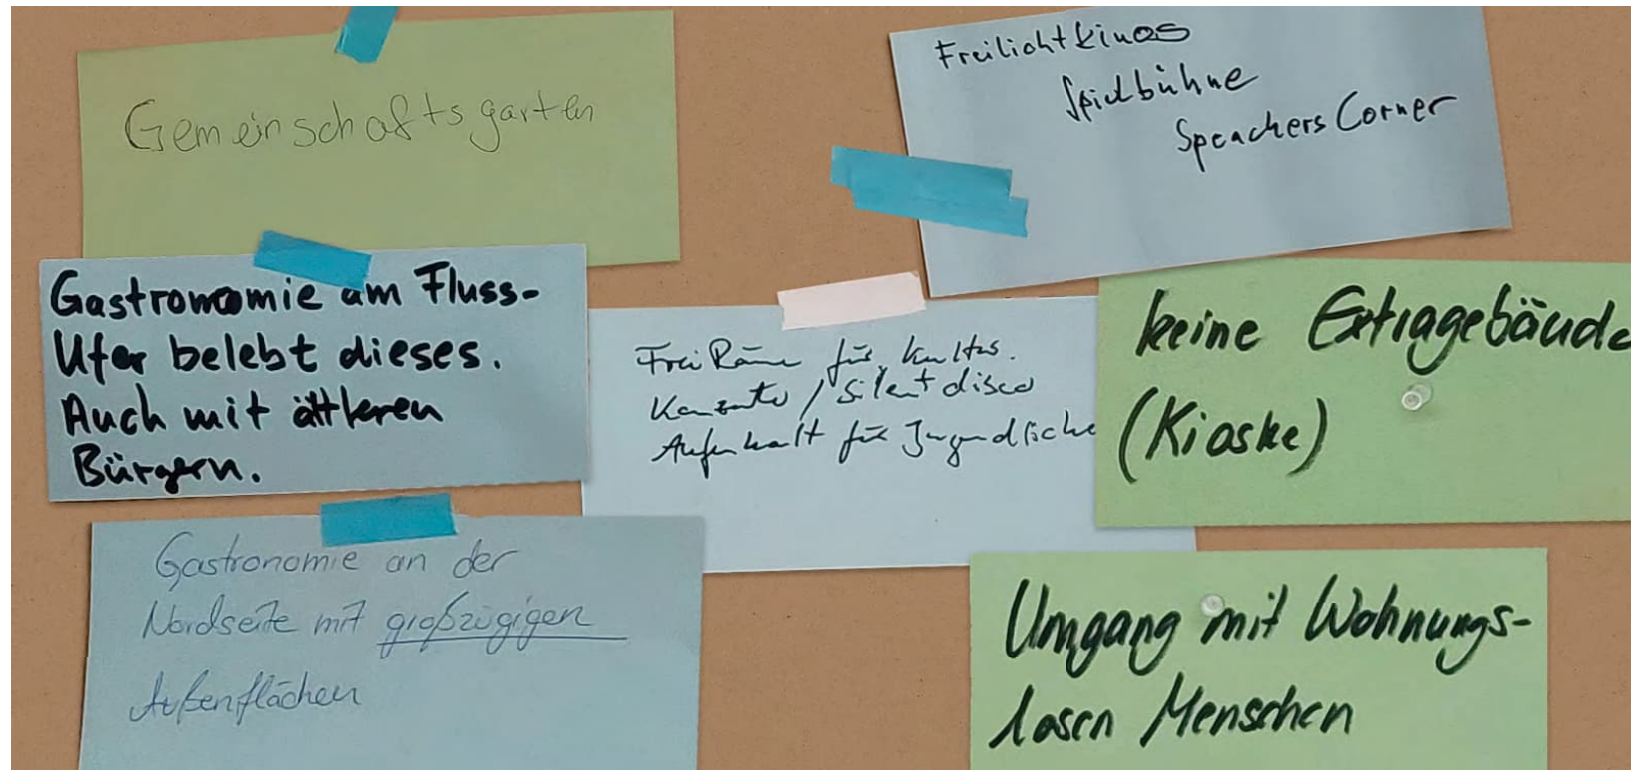 Gemeinschaftsgarten
Freilichtkinos
Spielbühne
Speachers Corner
Gastronomie am Fluss-
Ufer belebt dieses.
Auch mit ältleren
Bürgern.
FreiRäume für Kultur.
Konzerte / Silent disco
Aufenhalt für Jugendliche
keine Extragebäude
(Kioske)
Gastronomie an der
Nordseite mit großzügigen
Außenflächen
Umgang mit Wohnungs-
losen Menschen